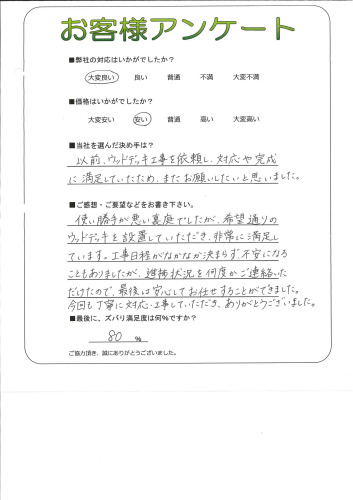 お客様アンケート
■弊社の対応はいかがでしたか?
大変良い 良い 普通 不満 大変不満
■価格はいかがでしたか?
大変安い 安い 普通 高い 大変高い
■当社を選んだ決め手は?
以前、ウッドデッキ工事を依頼し、対応や完成
に満足していたため、またお願いしたいと思いました。
■ご感想・ご要望などをお書き下さい。
使い勝手が悪い裏庭でしたが、希望通りの
ウッドデッキを設置していただき、非常に満足し
ています。工事日程がなかなか決まらず、不安になる
こともありましたが、進捗状況を何度かご連絡いた
だけたので、最後は安心してお任せすることができました。
今回も丁寧に対応・工事していただき、ありがとうございました。
■最後に、ズバリ満足度は何%ですか?
80 %
ご協力頂き、誠にありがとうございました。